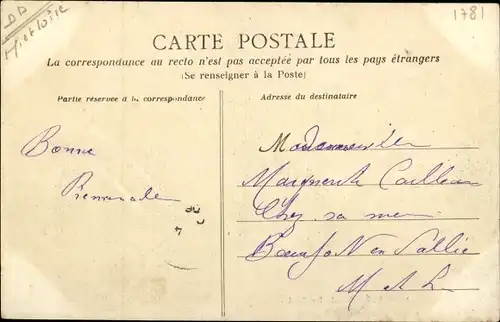 DD
M et Loire
1781
CARTE POSTALE
La correspondance au recto n'est pas acceptée par tous les pays étrangers
(Se renseigner à la Poste)
Partie réservée à la correspondance
Adresse du destinataire
Bonne
Promenade
Mademoiselle
Marguerite Cailleau
Chez sa mère
Beaufort en Vallée
M et L